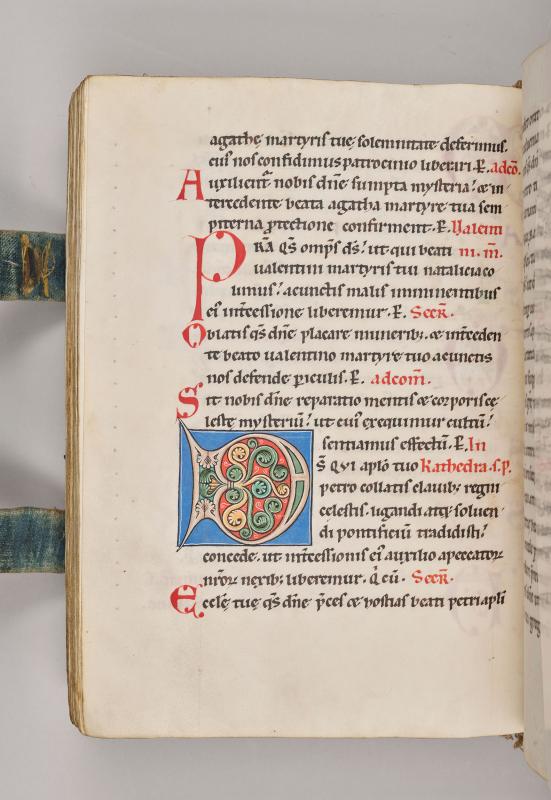 agathę martyris tuę solemnitate deferimus.
cui nos confidimus patrocinio liberari. P. adcō.
Auxilient nobis dñe sumpta mysteria: & in
tercedente beata agatha martyre tua sem
piterna ꝓtectione confirment. P. Valenti
PRA q̄s omp̄s d̄s: ut qui beati m. m̄.
ualentini martyris tui natalicia co
limus: a cunctis malis imminentibus
ei int̄cessione liberemur. P. Secr̄.
Oblatis q̄s dñe placare munerib; & int̄ceden
te beato ualentino martyre tuo a cunctis
nos defende ꝑiculis. P. adcom̄.
Sit nobis dñe reparatio mentis & corporis cę
lestę mysteriū: ut cui exequimur cultū:
sentiamus effectū. P. In
D̄S QVI aplō tuo Kathedra. s. p.
petro collatis clauib; regni
cęlestis. ligandi atq; soluen
di pontificiū tradidisti:
concede. ut int̄cessionis ei auxilio a peccator
nr̄or nexib; liberemur. Q̇ cū. Secr̄.
Ecclę tuę q̄s dñe p̄ces & hostias beati petri apli